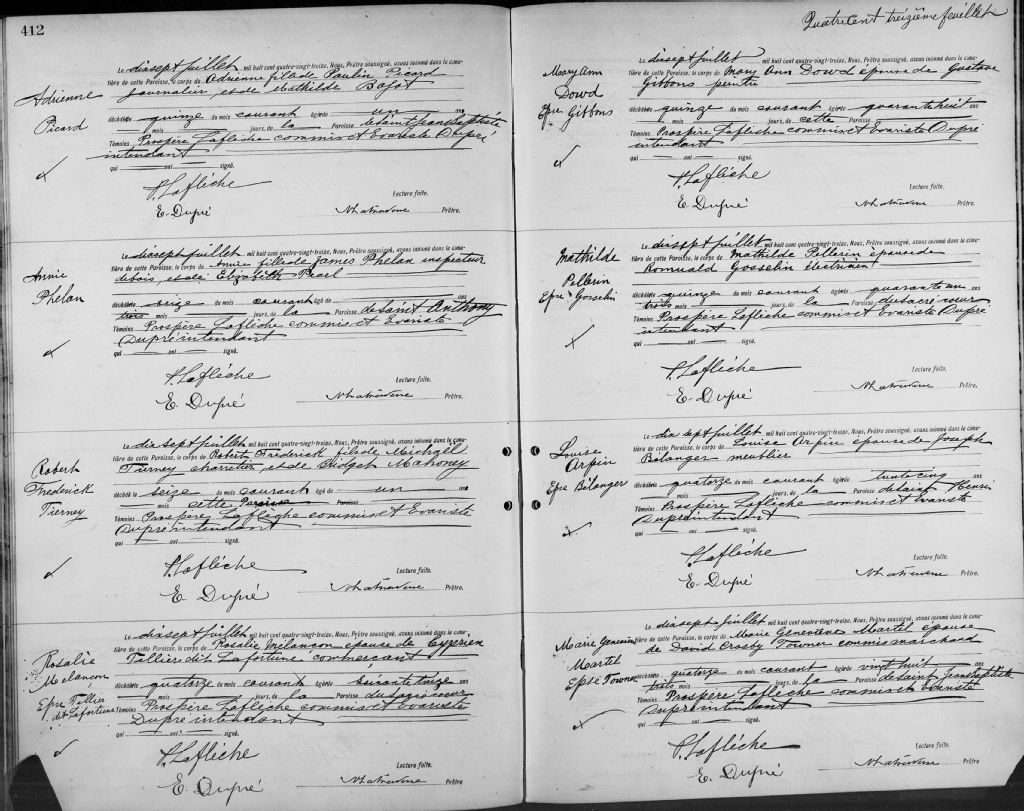 412
Adrienne
Picard
Le dixsept juillet mil huit cent quatre-vingt-treize, Nous, Prêtre soussigné, avons inhumé dans le cime-
tière de cette Paroisse, le corps de Adrienne fille de Paulin Picard
journalier et de Mathilde
décédée le quinze du mois courant âgée de un ans
mois jours, de la Paroisse de Saint Jean Baptiste
Témoins Prospère Laflèche commis et Evariste Dupré
intendant
qui ont signé.
P. Laflèche
Lecture faite.
E. Dupré
Prêtre.
Annie
Phelan
Le dixsept juillet mil huit cent quatre-vingt-treize, Nous, Prêtre soussigné, avons inhumé dans le cime-
tière de cette Paroisse, le corps de Annie fille de James Phelan inspecteur
de bois, et de Elizabeth Pearl
décédée le seize du mois courant âgé de ans
trois mois jours, de la Paroisse de Saint Anthony
Témoins Prospère Laflèche commis et Evariste
Dupré intendant
qui ont signé.
P. Laflèche
Lecture faite.
E. Dupré
Prêtre.
Robert
Frederick
Tierney
Le dix sept juillet mil huit cent quatre-vingt-treize, Nous, Prêtre soussigné, avons inhumé dans le cime-
tière de cette Paroisse, le corps de Robert Frederick fils de Michaël
Tierney charretier, et de Bridget Mahoney
décédé le seize du mois courant âgé de un ans
mois cette Paroisse
Témoins Prospère Laflèche commis et Evariste
Dupré intendant
qui ont signé.
P. Laflèche
Lecture faite.
E. Dupré
Prêtre.
Rosalie
Melancon
Epse Tellier
dit Lafortune
Le dixsept juillet mil huit cent quatre-vingt-treize, Nous, Prêtre soussigné, avons inhumé dans le cime-
tière de cette Paroisse, le corps de Rosalie Mélancon épouse de Cyprien
Tellier dit Lafortune commercant
décédée le quatorze du mois courant âgée de ans
mois jours, de la Paroisse du Sacré coeur
Témoins Prospère Laflèche commis et Evariste
Dupré intendant
qui ont signé.
P. Laflèche
Lecture faite.
E. Dupré
Prêtre
Quatre cent treizième feuillet
Mary Ann
Dowd
Epse Gibbons
Le dixsept juillet mil huit cent quatre-vingt-treize, Nous, Prêtre soussigné, avons inhumé dans le cime-
tière de cette Paroisse, le corps de Mary Ann Dowd épouse de Gustave
Gibbons peintre
décédée le quinze du mois courant âgée de quarante huit ans
mois jours, de cette Paroisse
Témoins Prospère Laflèche commis et Evariste Dupré
intendant
qui ont signé.
P. Laflèche
Lecture faite.
E. Dupré
Prêtre.
Mathilde
Pellerin
Epse Gosselin
Le dixsept juillet mil huit cent quatre-vingt-treize, Nous, Prêtre soussigné, avons inhumé dans le cime-
tière de cette Paroisse, le corps de Mathilde Pellerin épouse de
Romuald Gosselin électricien
décédée le quinze du mois courant âgée de quarante un ans
trois mois jours, de la Paroisse du sacré coeur
Témoins Prospère Laflèche commis et Evariste Dupré
intendant
qui ont signé.
P. Laflèche
Lecture faite.
E. Dupré
Prêtre.
Louise
Arpin
Epse Bélanger
Le dix sept juillet mil huit cent quatre-vingt-treize, Nous, Prêtre soussigné, avons inhumé dans le cime-
tière de cette Paroisse, le corps de Louise Arpin épouse de Joseph
Bélanger meublier
décédée le quatorze du mois courant âgée de trente cinq ans
mois jours, de la Paroisse de Saint Henri
Témoins Prospère Laflèche commis et Evariste
Dupré intendant
qui ont signé.
P. Laflèche
Lecture faite.
E. Dupré
Prêtre.
Marie Genevieve
Martel
Epse Towner
Le dixsept juillet mil huit cent quatre-vingt-treize, Nous, Prêtre soussigné, avons inhumé dans le cime-
tière de cette Paroisse, le corps de Marie Geneviève Martel épouse
de David Crosby Towner commis marchand
décédée le quatorze du mois courant âgée de vingt huit ans
trois mois jours, de la Paroisse de Saint Jean Baptiste
Témoins Prospère Laflèche commis et Evariste
Dupré intendant
qui ont signé.
P. Laflèche
Lecture faite.
E. Dupré
Prêtre.